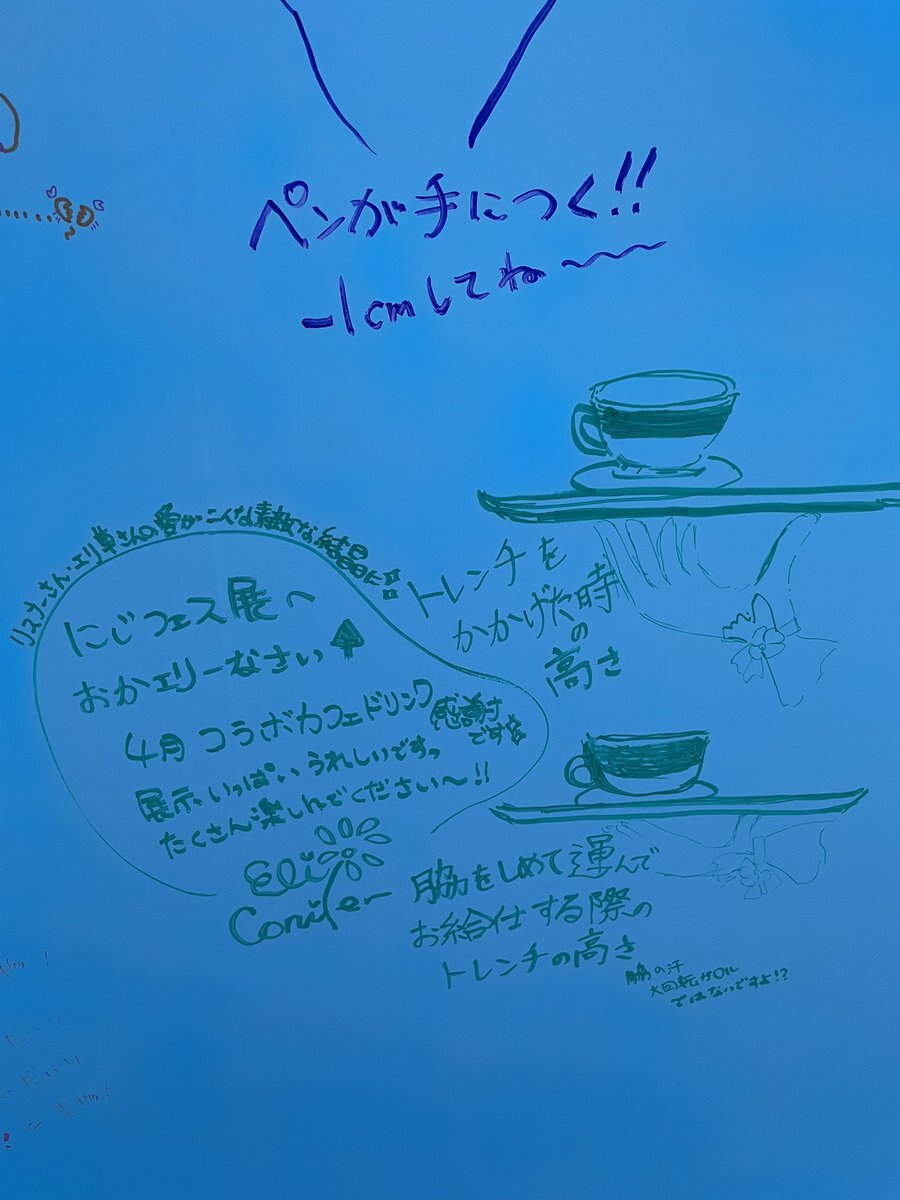 ペンが手につく!!
-1cmしてね〜〜
リスナーさん・エリ草さんの愛がこんな素敵な結晶に!!
にじフェス展へ
おかエリーなさい
4月 コラボカフェドリンク
感謝です
展示、いっぱいうれしいですっ
たくさん楽しんでください〜!!
Eli
Conifer
トレンチを
かかげた時
の
高さ
脇をしめて運んで
お給仕する際の
トレンチの高さ
脇の汗
大回転ガロル
ではないですよ!?